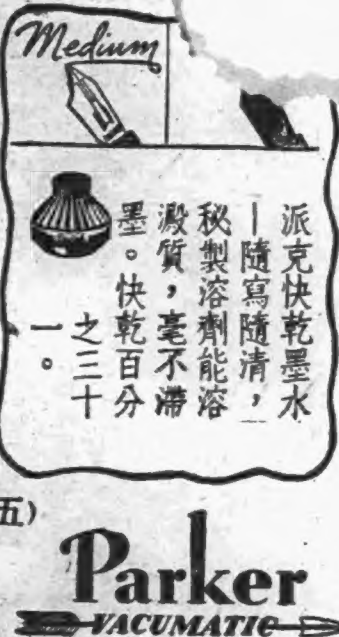 Medium
派克快乾墨水
—隨寫隨清，
秘製溶劑能溶
澱質，毫不滯
墨。快乾百分
之三十
一。
五)
Parker
VACUMATIC